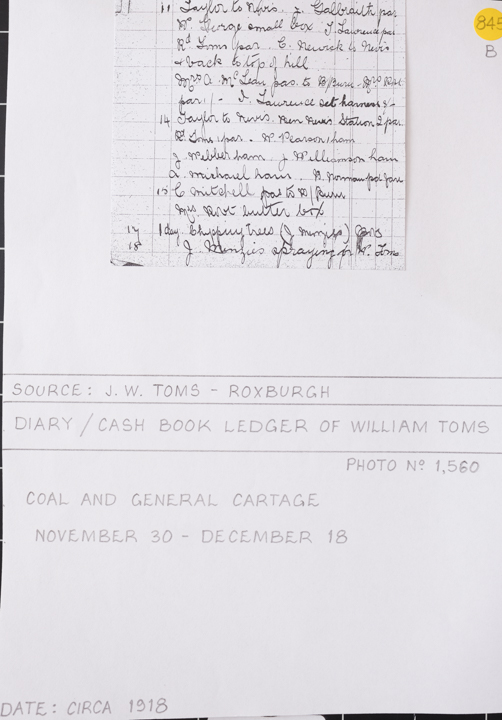 11 Taylor to Nevis. J. Galbraith par
Mrs George small box T. Lawrence par
Rd Toms par. C. Newick to Nevis
& back to top of hill
Mrs A. McLean pas. to R/Burn. Mrs
par 1/- T. Lawrence set harness
14 Taylor to Nevis. Ken Nevis Station 2 par
Rd Toms 1 par. W Pearson 1 ham
J. Webber ham. J Williamson ham
A. Michael ham. N. Norman
15 C Mitchell pas to R/Burn
Mrs butter box
17 1 day Chipping trees (J Menzies)
18 J. Menzies spraying for W. Toms
845
B
SOURCE: J. W. TOMS - ROXBURGH
DIARY / CASH BOOK LEDGER OF WILLIAM TOMS
PHOTO Nº 1,560
COAL AND GENERAL CARTAGE
NOVEMBER 30 - DECEMBER 18
DATE: CIRCA 1918